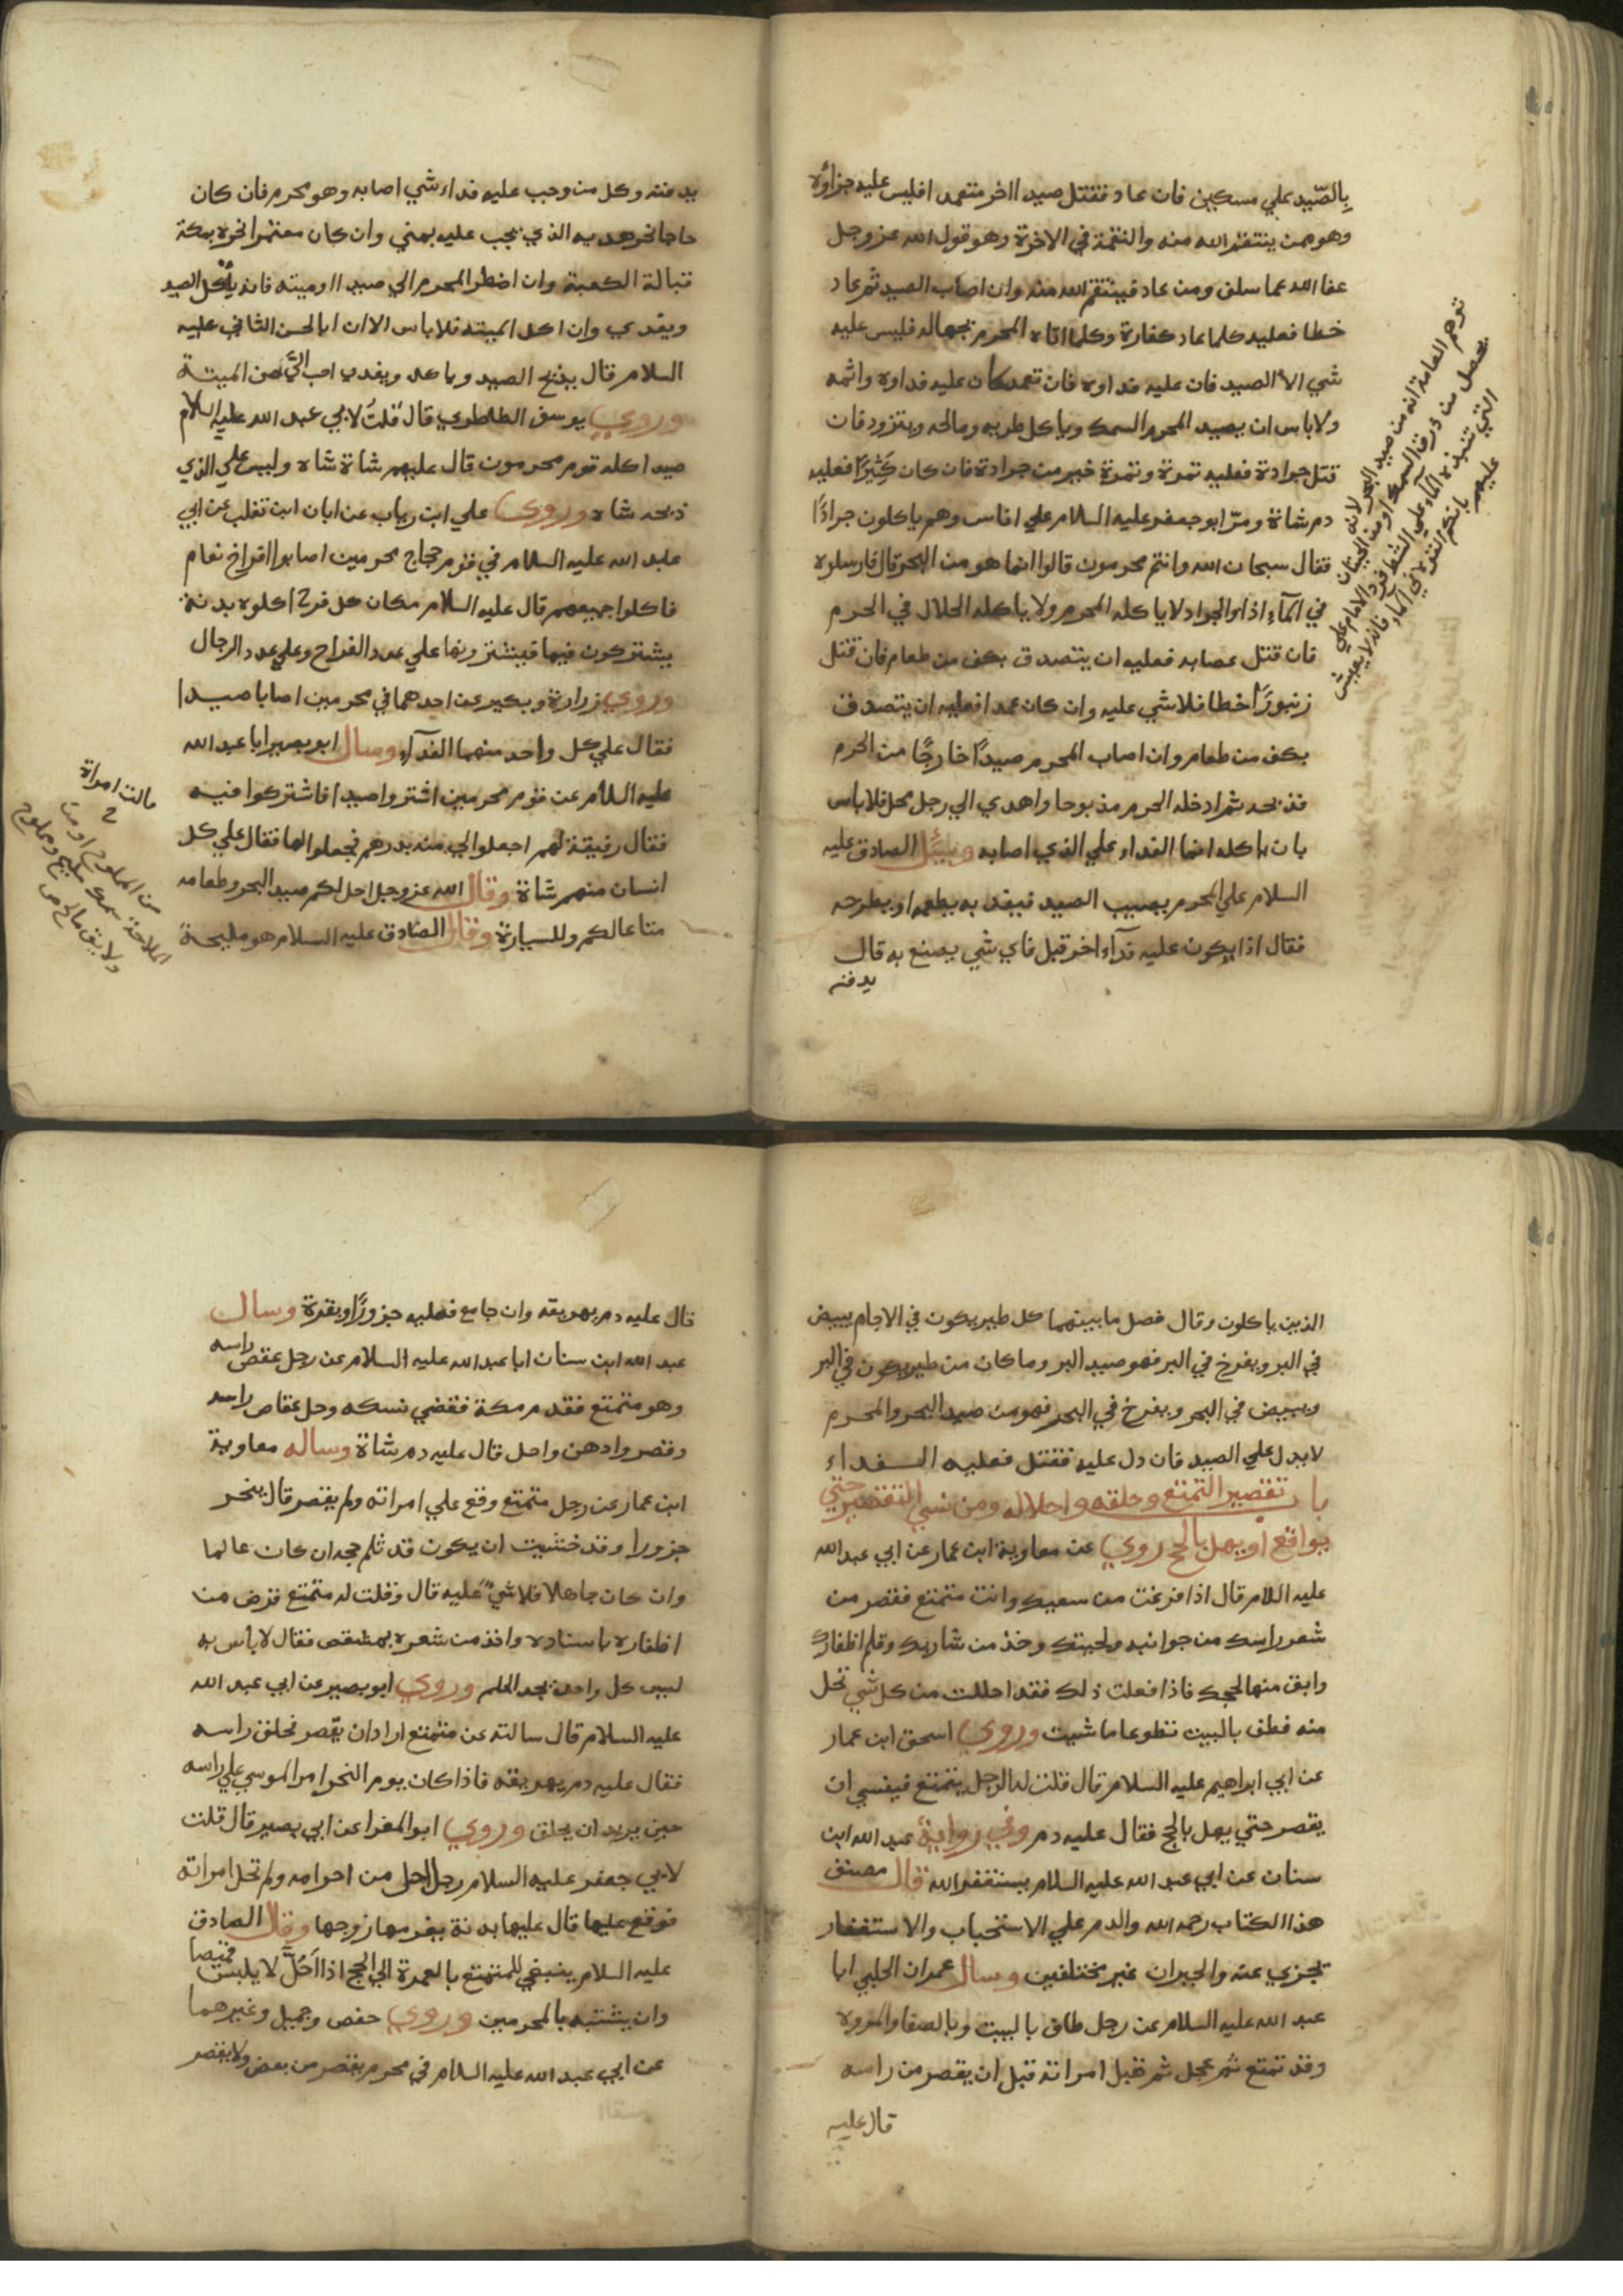 بِالصّيد علي مسكين فان عاد فقتل صيدا اخر متعمدا فليس عليه جزاؤه
وهو ممن ينتقم الله منه والنقمة في الاخرة وهو قول الله عز وجل
عفا الله عما سلف ومن عاد فينتقم الله منه وان اصاب الصيد ثم عاد
خطا فعليه كلما عاد كفارة وكلما اتاه المحرم بجهاله فليس عليه
شي الا الصيد فان عليه فداوه فان تعمد كان عليه فداوه واثمه
ولا باس ان يصيد المحرم السمك وياكل طريه ومالحه ويتزود فان
قتل جرادة فعليه تمرة وتمرة خير من جرادة فان كان كَثِيرًا فعليه
دم شاة ومرّ ابو جعفر عليه السلام علي اناس وهم ياكلون جرادًا
فقال سبحان الله وانتم محرمون قالوا انما هو من البحر قال فارسلوه
في المآء اذا والجراد لا ياكله المحرم ولا ياكله الحلال في الحرم
فان قتل عصايه فعليه ان يتصدق بكف من طعام فان قتل
زنبورًا خطا فلا شي عليه وان كان عمدا فعليه ان يتصدق
بكف من طعام وان اصاب المحرم صيدًا خارجًا من الحرم
فذبحه ثم ادخله الحرم مذبوحا واهدي الي رجل محل فلا باس
بان ياكله انما الفداء علي الذي اصابه وسُئل الصادق عليه
السلام علي المحرم يصيب الصيد فيفديه يطعمه او يطرحه
فقال اذا يكون عليه فدآء اخر قيل فاي شي يصنع به قال
يدفنه
توهم العامة انه من صيد البحر لانه
يحصل من ذرق السمك او من الحيتان
التي تنبذه المآء علي الشط فرد الامام علي
عليهم بانكم القوه في المآء فانه لا يعيش
يدفنه وكل من وجب عليه فداء شي اصابه وهو محرم فان كان
حاجا نحر هديه الذي يجب عليه بمني وان كان معتمرا نحره بمكة
قبالة الكعبة وان اضطر المحرم الي صيد او ميته فانه يأكل الصيد
ويفدي وان اكل الميته فلا باس الا ان ابا الحسن الثاني عليه
السلام قال يذبح الصيد وياكله ويفدي احب اليَّ من الميتة
وروي يوسف الطاطري قال قلتُ لابي عبد الله عليه السلام
صيد اكله قوم محرمون قال عليهم شاة شاه وليس علي الذي
ذبحه شاه وروي علي ابن رياب عن ابان ابن تغلب عن ابي
عبد الله عليه السلام في قوم حجاج محرمين اصابوا افراخ نعام
فاكلوا جميعهم قال عليه السلام مكان كل فرخ اكلوه بدنة
يشتركون فيها فيشترونها علي عدد الفراخ وعلي عدد الرجال
وروي زرارة وبكير عن احدهما في محرمين اصابا صيدا
فقال علي كل واحد منهما الفدآء وسال ابو بصير ابا عبد الله
عليه السلام عن قوم محرمين اشتروا صيدا فاشتركوا فيه
فقال رفيقة لهم اجعلوا لي منه بدرهم فجعلوا لها فقال علي كل
انسان منهم شاة وقال الله عز وجل احل لكم صيد البحر وطعامه
متاعا لكم وللسيارة وقال الصادق عليه السلام هو مليحة
مالت امراة
من المملوح او من
الملاحة سمك مليح ومملوح
ولا يق مالح ص
الذين ياكلون وقال فصل ما بينهما كل طير يكون في الاجام يبيض
في البر ويفرخ في البر فهو صيد البر وما كان من طير يكون في البر
ويبيض في البحر ويفرخ في البحر فهو من صيد البحر والمحرم
لا يدل علي الصيد فان دل عليه فقتل فعليه الفداء
باب تقصير التمتع وحلقه واحلاله ومن نسي التقصير حتي
يواقع او يهل بالحج روي عن معاوية ابن عمار عن ابي عبد الله
عليه السلام قال اذا فرغت من سعيك وانت متمتع فقصر من
شعر راسك من جوانبه ولحيتك وخذ من شاربك وقلم اظفارك
وابق منها لحجك فاذا فعلت ذلك فقد احللت من كل شي تحل
منه فطف بالبيت تطوعا ما شيت وروي اسحق ابن عمار
عن ابي ابراهيم عليه السلام قال قلت له الرجل يتمتع فينسي ان
يقصر حتي يهل بالحج فقال عليه دم وفي رواية عبد الله ابن
سنان عن ابي عبد الله عليه السلام يستغفر الله قال مصنف
هذا الكتاب رحمه الله والدم علي الاستحباب والاستغفار
تجزي عنه والخبران غير مختلفين وسال عمران الحلبي ابا
عبد الله عليه السلام عن رجل طاف بالبيت وبالصفا والمروه
وقد تمتع ثم عجل ثم قبل امراته قبل ان يقصر من راسه
قال عليه
قال عليه دم يهريقه وان جامع فعليه جزورًا وبقرة وسال
عبد الله ابن سنان ابا عبد الله عليه السلام عن رجل عقص راسه
وهو متمتع فقدم مكة فقضي نسكه وحل عقاص راسه
وقصر وادهن واحل قال عليه دم شاة وساله معاوية
ابن عمار عن رجل متمتع وقع علي امراته ولم يقصر قال ينحر
جزورا وقد خشيت ان يكون قد ثلم حجه ان كان عالما
وان كان جاهلا فلا شيٌ عليه قال وقلت له متمتع قرض من
اظفاره باسنانه واخذ من شعره بمشقص فقال لا باس به
ليس كل واحد يجد الجلم وروي ابو بصير عن ابي عبد الله
عليه السلام قال سالته عن متمتع اراد ان يقصر فحلق راسه
فقال عليه دم يهريقه فاذا كان يوم النحر امر الموسي علي راسه
حين يريد ان يحلق وروي ابو المغرا عن ابي بصير قال قلت
لابي جعفر عليه السلام رجل احل من احرامه ولم تحل امراته
فوقع عليها قال عليها بدنة يغرمها زوجها وقال الصادق
عليه السلام ينبغي للمتمتع بالعمرة الي الحج اذا اَحَلَّ لا يلبس قميصا
وان يشتبه بالمحرمين وروي حفص وجميل وغيرهما
عن ابي عبد الله عليه السلام في محرم يقصر من بعض ولا يقصر